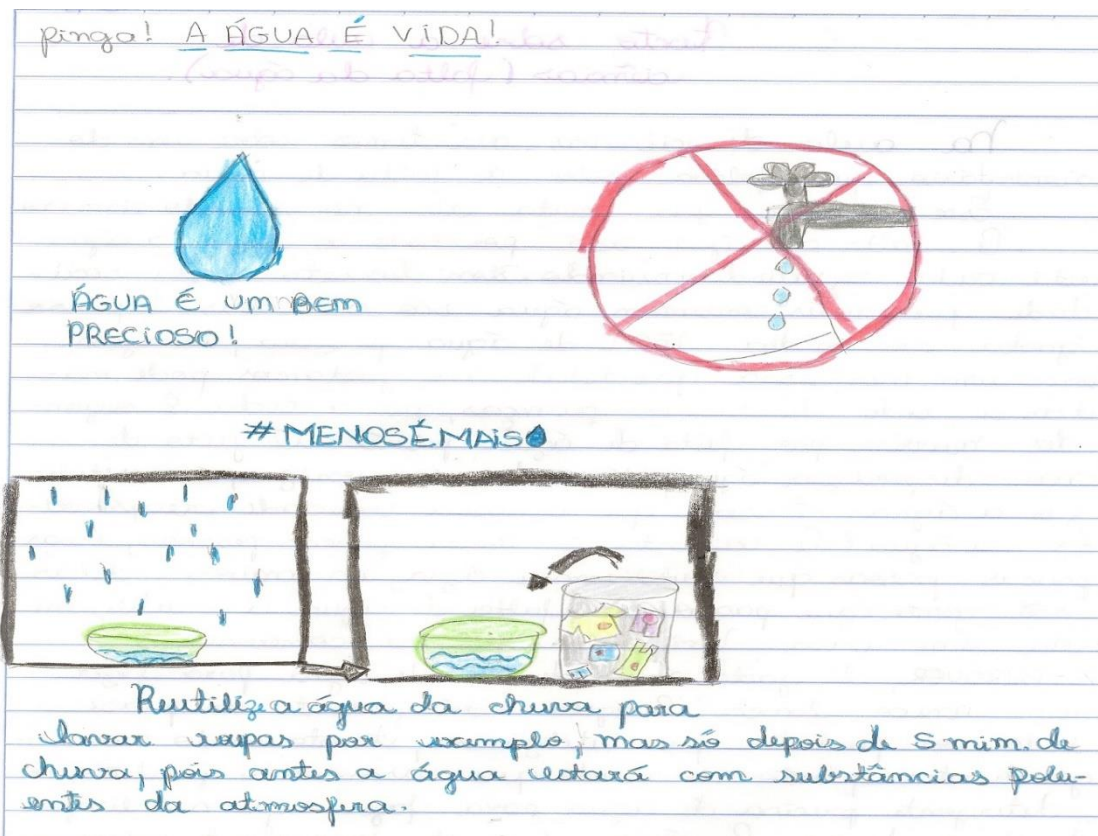 pinga! A ÁGUA É VIDA!
ÁGUA É UM BEM
PRECIOSO!
#MENOSÉMAIS
Reutilize a água da chuva para
lavar roupas por exemplo, mas só depois de 5 mim. de
chuva, pois antes a água estará com substâncias polu-
entes da atmosfera.